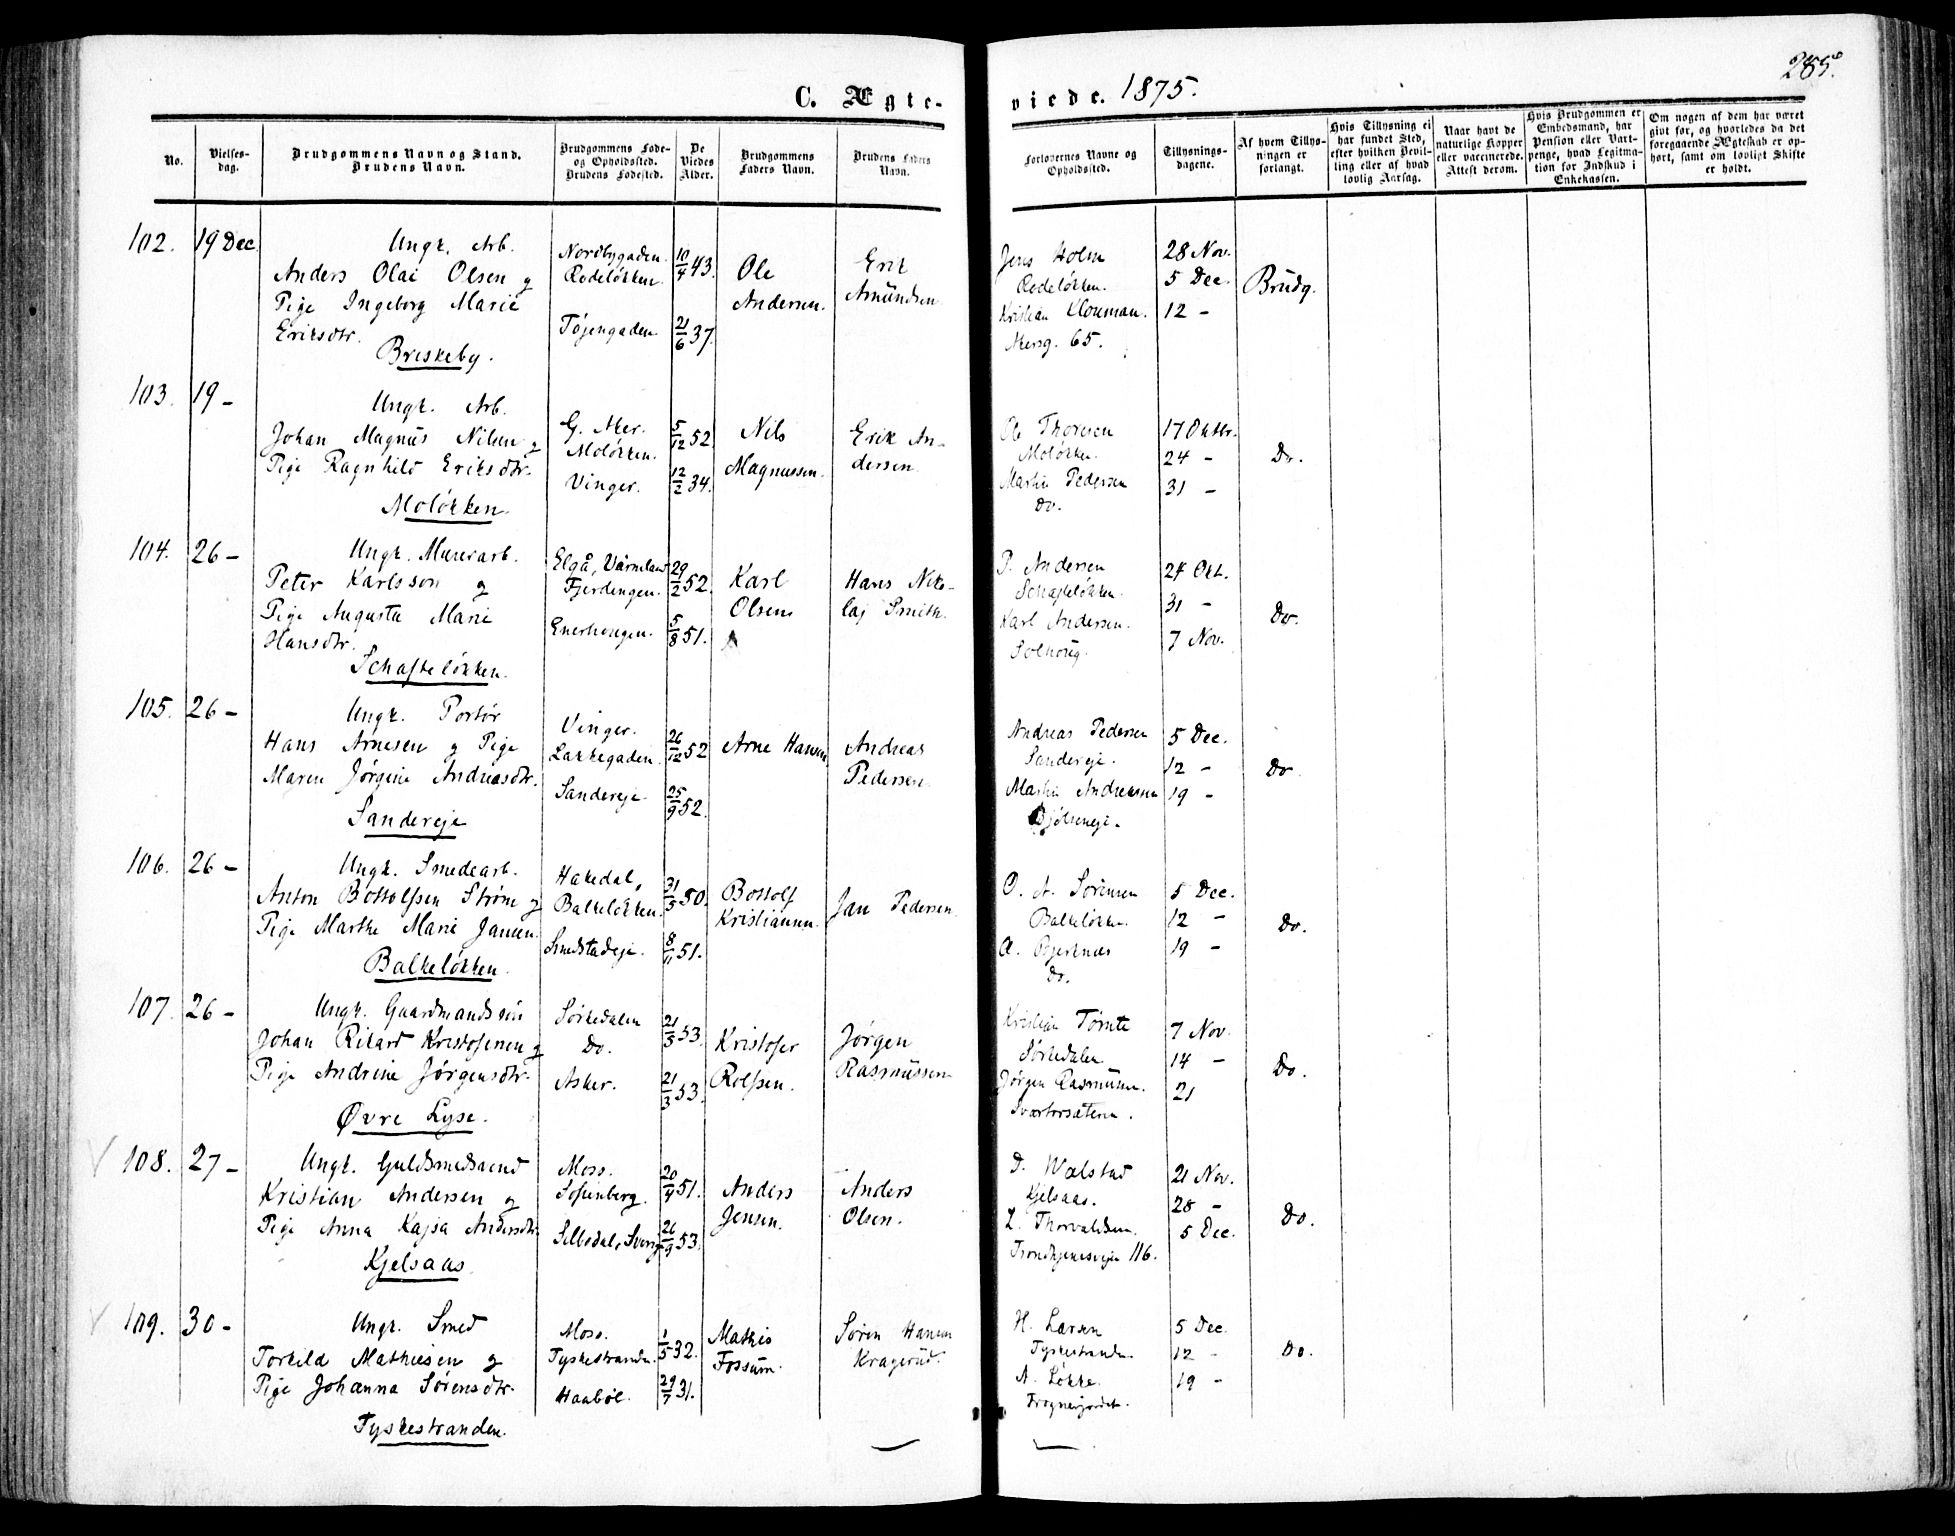 C. Ægte-
viede. 1875.
285.
No.
Vielses-
dag.
Brudgommens Navn og Stand.
Brudens Navn.
Brudgommens Føde-
og Opholdssted.
Brudens Fødested.
De
Viedes
Alder.
Brudgommens
Faders Navn.
Brudens Faders
Navn.
Forlovernes Navne og
Opholdssted.
Tillysnings-
dagene.
Af hvem Tillys-
ningen er
forlangt.
Hvis Tillysning ei
har fundet Sted,
efter hvilken Bevil-
ling eller af hvad
lovlig Aarsag.
Naar havt de
naturlige Kopper
eller vaccinerede.
Attest derom.
Hvis Brudgommen er
Embedsmand, har
Pension eller Vart-
penge, hvad Legitima-
tion for Indskud i
Enkekassen.
Om nogen af dem har været
givt før, og hvorledes da det
foregaaende Ægteskab er op-
hørt, samt om lovligt Skifte
er holdt.
102. 19 Dec.
Ungk. Arb.
Anders Olai Olsen og
Pige Ingeborg Marie
Eriksdtr.
Briskeby.
Nordbygaden.
Rodeløkken.
Tøjengaden
10/4 43.
21/6 37.
Ole
Andersen.
Erik
Amundsen.
Jens Holm
Rodeløkken.
Kristian Klouman.
Akersg. 65.
28 Nov.
5 Dec.
12 -
Brudg.
103. 19 -
Ungk. Arb.
Johan Magnus Nilsen og
Pige Ragnhild Eriksdtr.
Moløkken.
G. Aker.
Moløkken.
Vinger.
5/12 52
12/2 34.
Nils
Magnussen.
Erik An-
dersen.
Ole Thoresen
Moløkken.
Martin Pedersen
Do.
17 Oktbr.
24 -
31 -
Do.
104. 26 -
Ungk. Murerarb.
Peter Karlsson og
Pige Augusta Marie
Hansdtr.
Schafteløkken.
Elgå, Värmland
Fjerdingen.
Enerhougen.
29/2 52.
5/8 51.
Karl
Olsen
Hans Niko-
laj Smith.
P. Andersen
Schafteløkken.
Karl Andersen.
Solhoug.
24 Okt.
31 -
7 Nov.
Do.
105. 26 -
Ungk. Portør
Hans Arnesen og Pige
Maren Jørgine Andreasdtr.
Sandereje
Vinger.
Lakkegaden.
Sandereje.
26/12 52
25/9 52.
Arne Hansen
Andreas
Pedersen.
Andreas Pedersen
Sandereje.
Martin Andreasen
Bjølseneje.
5 Dec.
12 -
19 -
Do
106. 26 -
Ungk. Smedearb.
Anton Bottolfsen Strøm og
Pige Marthe Marie Jansen.
Balkeløkken.
Hakedal,
Balkeløkken.
Smedstadeje.
31/3 50.
8/11 51.
Bottolf
Kristiansen.
Jan Pedersen.
O. A. Sørensen
Balkeløkken.
A. Bjerknæs
Do.
5 Dec.
12 -
19 -
Do.
107. 26 -
Ungk. Gaardmandssøn
Johan Rikard Kristofersen og
Pige Andrine Jørgensdtr.
Øvre Lyse.
Sørkedalen
Do.
Asker.
21/3 53.
21/3 53.
Kristofer
Rolfsen.
Jørgen
Rasmussen
Kristian Tømte
Sørkedalen
Jørgen Rasmussen.
Svartorsæteren.
7 Nov.
14 -
21
Do.
108. 27 -
Ungk. Guldsmedsvend
Kristian Andersen og
Pige Anna Kajsa Andersdtr.
Kjelsaas.
Moss.
Sofienberg.
Silbodal, Sverig
20/4 51.
26/9 53.
Anders
Jensen.
Anders
Olsen.
D. Wolstad
Kjelsaas.
L. Thorvaldsen.
Trondhjemsvejen 116.
21 Nov.
28 -
5 Dec.
Do.
109. 30 -
Ungk. Smed
Torkild Mathiesen og
Pige Johanna Sørensdtr.
Tyskestranden.
Moss.
Tyskestranden.
Haabøl.
1/5 32.
29/7 31.
Mathis
Fossum.
Søren Hansen
Kragerud.
H. Larsen
Tyskestranden.
A. Løkke.
Frognerjordet.
5 Dec.
12 -
19 -
Do.